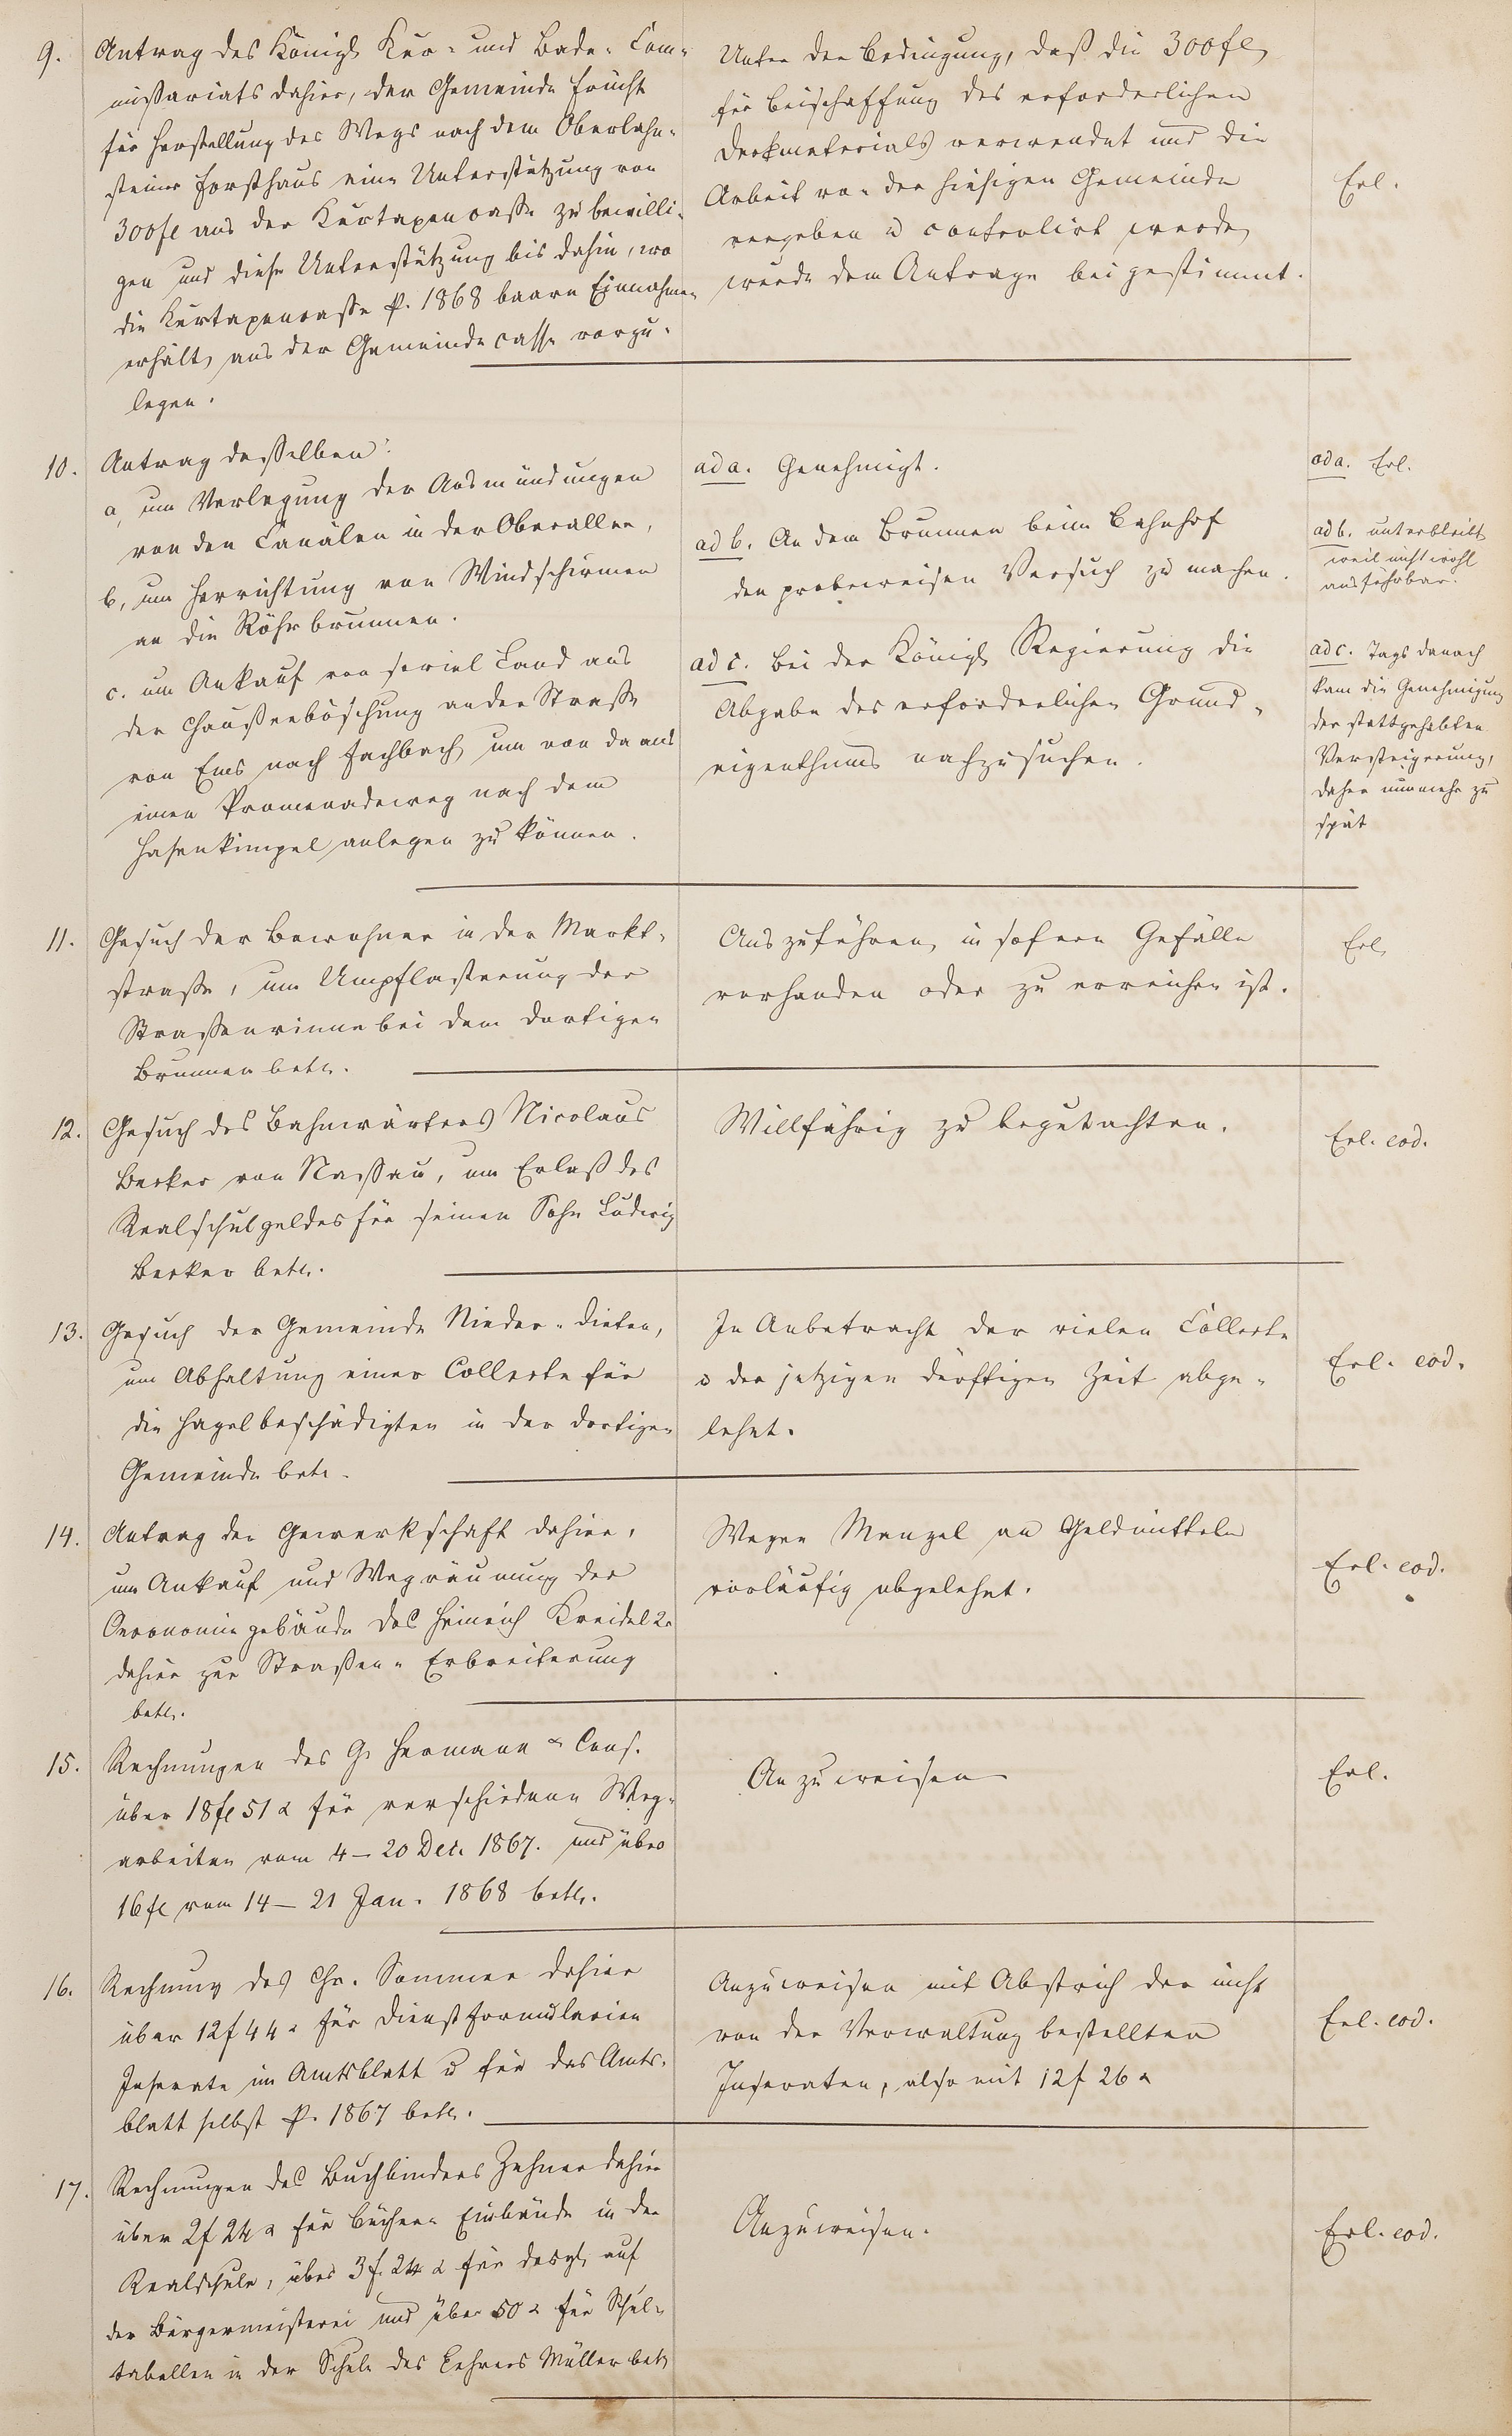 9.
Antrag des Königl Kur- und Bade-Com-
missariats dahier, der Gemeinde Frücht
für Herstellung des Wegs nach dem Oberlahn-
steiner Forsthaus eine Unterstützung von
300 fl aus der Kurtaxencasse zu bewilli-
gen und diese Unterstützung bis dahin, wo
die Kurtaxencasse p. 1868 baare Einnahmen
erhält, aus der Gemeindecasse vorzu-
legen.
Unter der Bedingung, daß die 300 fl
für Beischaffung des erforderlichen
Deckmaterials verwendet und die
Arbeit von der hiesigen Gemeinde
vergeben u controlirt werde,
wurde dem Antrage beigestimmt.
Erl.
10.
Antrag desselben:
a, um Verlegung der Ausmündungen
von den Canälen in der Oberallee,
b, um Herrichtung von Windschirmen
an die Röhrbrunnen.
c. um Ankauf von soviel Land aus
der Chausseeböschung an der Straße
von Ems nach Fachbach, um von da aus
einen Promenadeweg nach dem
Hasenkümpel anlegen zu können.
ad a. Genehmigt.
ad b. An dem Brunnen beim Bahnhof
den probeweisen Versuch zu machen.
ad c. Bei der Königl Regierung die
Abgabe des erforderlichen Grund-
eigenthums nachzusuchen.
ad a. Erl.
ad b. unterbleibt
weil nicht wohl
ausführbar.
ad c. Tags danach
kam die Genehmigung
der stattgehabten
Versteigerung,
daher nunmehr zu
spät
11.
Gesuch der Bewohner in der Markt-
straße, um Umpflasterung der
Straßenrinne bei dem dortigen
Brunnen betr.
Auszuführen, in sofern Gefälle
vorhanden oder zu erreichen ist.
Erl
12.
Gesuch des Bahnwärters Nicolaus
Becker von Nassau, um Erlaß des
Realschulgeldes für seinen Sohn Ludwig
Becker betr.
Willfährig zu begutachten.
Erl. eod.
13.
Gesuch der Gemeinde Nieder-Dieten,
um Abhaltung einer Collecte für
die Hagelbeschädigten in der dortigen
Gemeinde betr.
In Anbetracht der vielen Collecte
u der jetzigen dürftigen Zeit abge-
lehnt.
Erl. eod.
14.
Antrag der Gewerkschaft dahier,
um Ankauf und Wegräumung der
Oeconomiegebäude des Heinrich Kreidel 2r
dahier zur Straßen-Erbreiterung
betr.
Wegen Mangel an Geldmitteln
vorläufig abgelehnt.
Erl. eod.
15.
Rechnungen des G. Hermann & Cons.
über 18 fl 51 x für verschiedene Weg-
arbeiten vom 4 - 20 Dec. 1867. und über
16 fl vom 14 - 21 Jan. 1868 betr.
Anzuweisen
Erl.
16.
Rechnung des Chr. Sommer dahier
über 12 f 44 x für Dienstformularien
Inserate im Amtsblatt u für das Amts-
blatt selbst p. 1867 betr.
Anzuweisen mit Abstrich der nicht
von der Verwaltung bestellten
Inseraten, also mit 12 f 26 x
Erl. eod.
17.
Rechnungen des Buchbinders Zehner dahier
über 2 f 24 x für Bücher-Einbände in der
Realschule, über 3 f. 24 x für desgl. auf
der Bürgermeisterei und über 50 x für Schul-
tabellen in der Schule des Lehrers Müller betr
Anzuweisen.
Erl. eod.